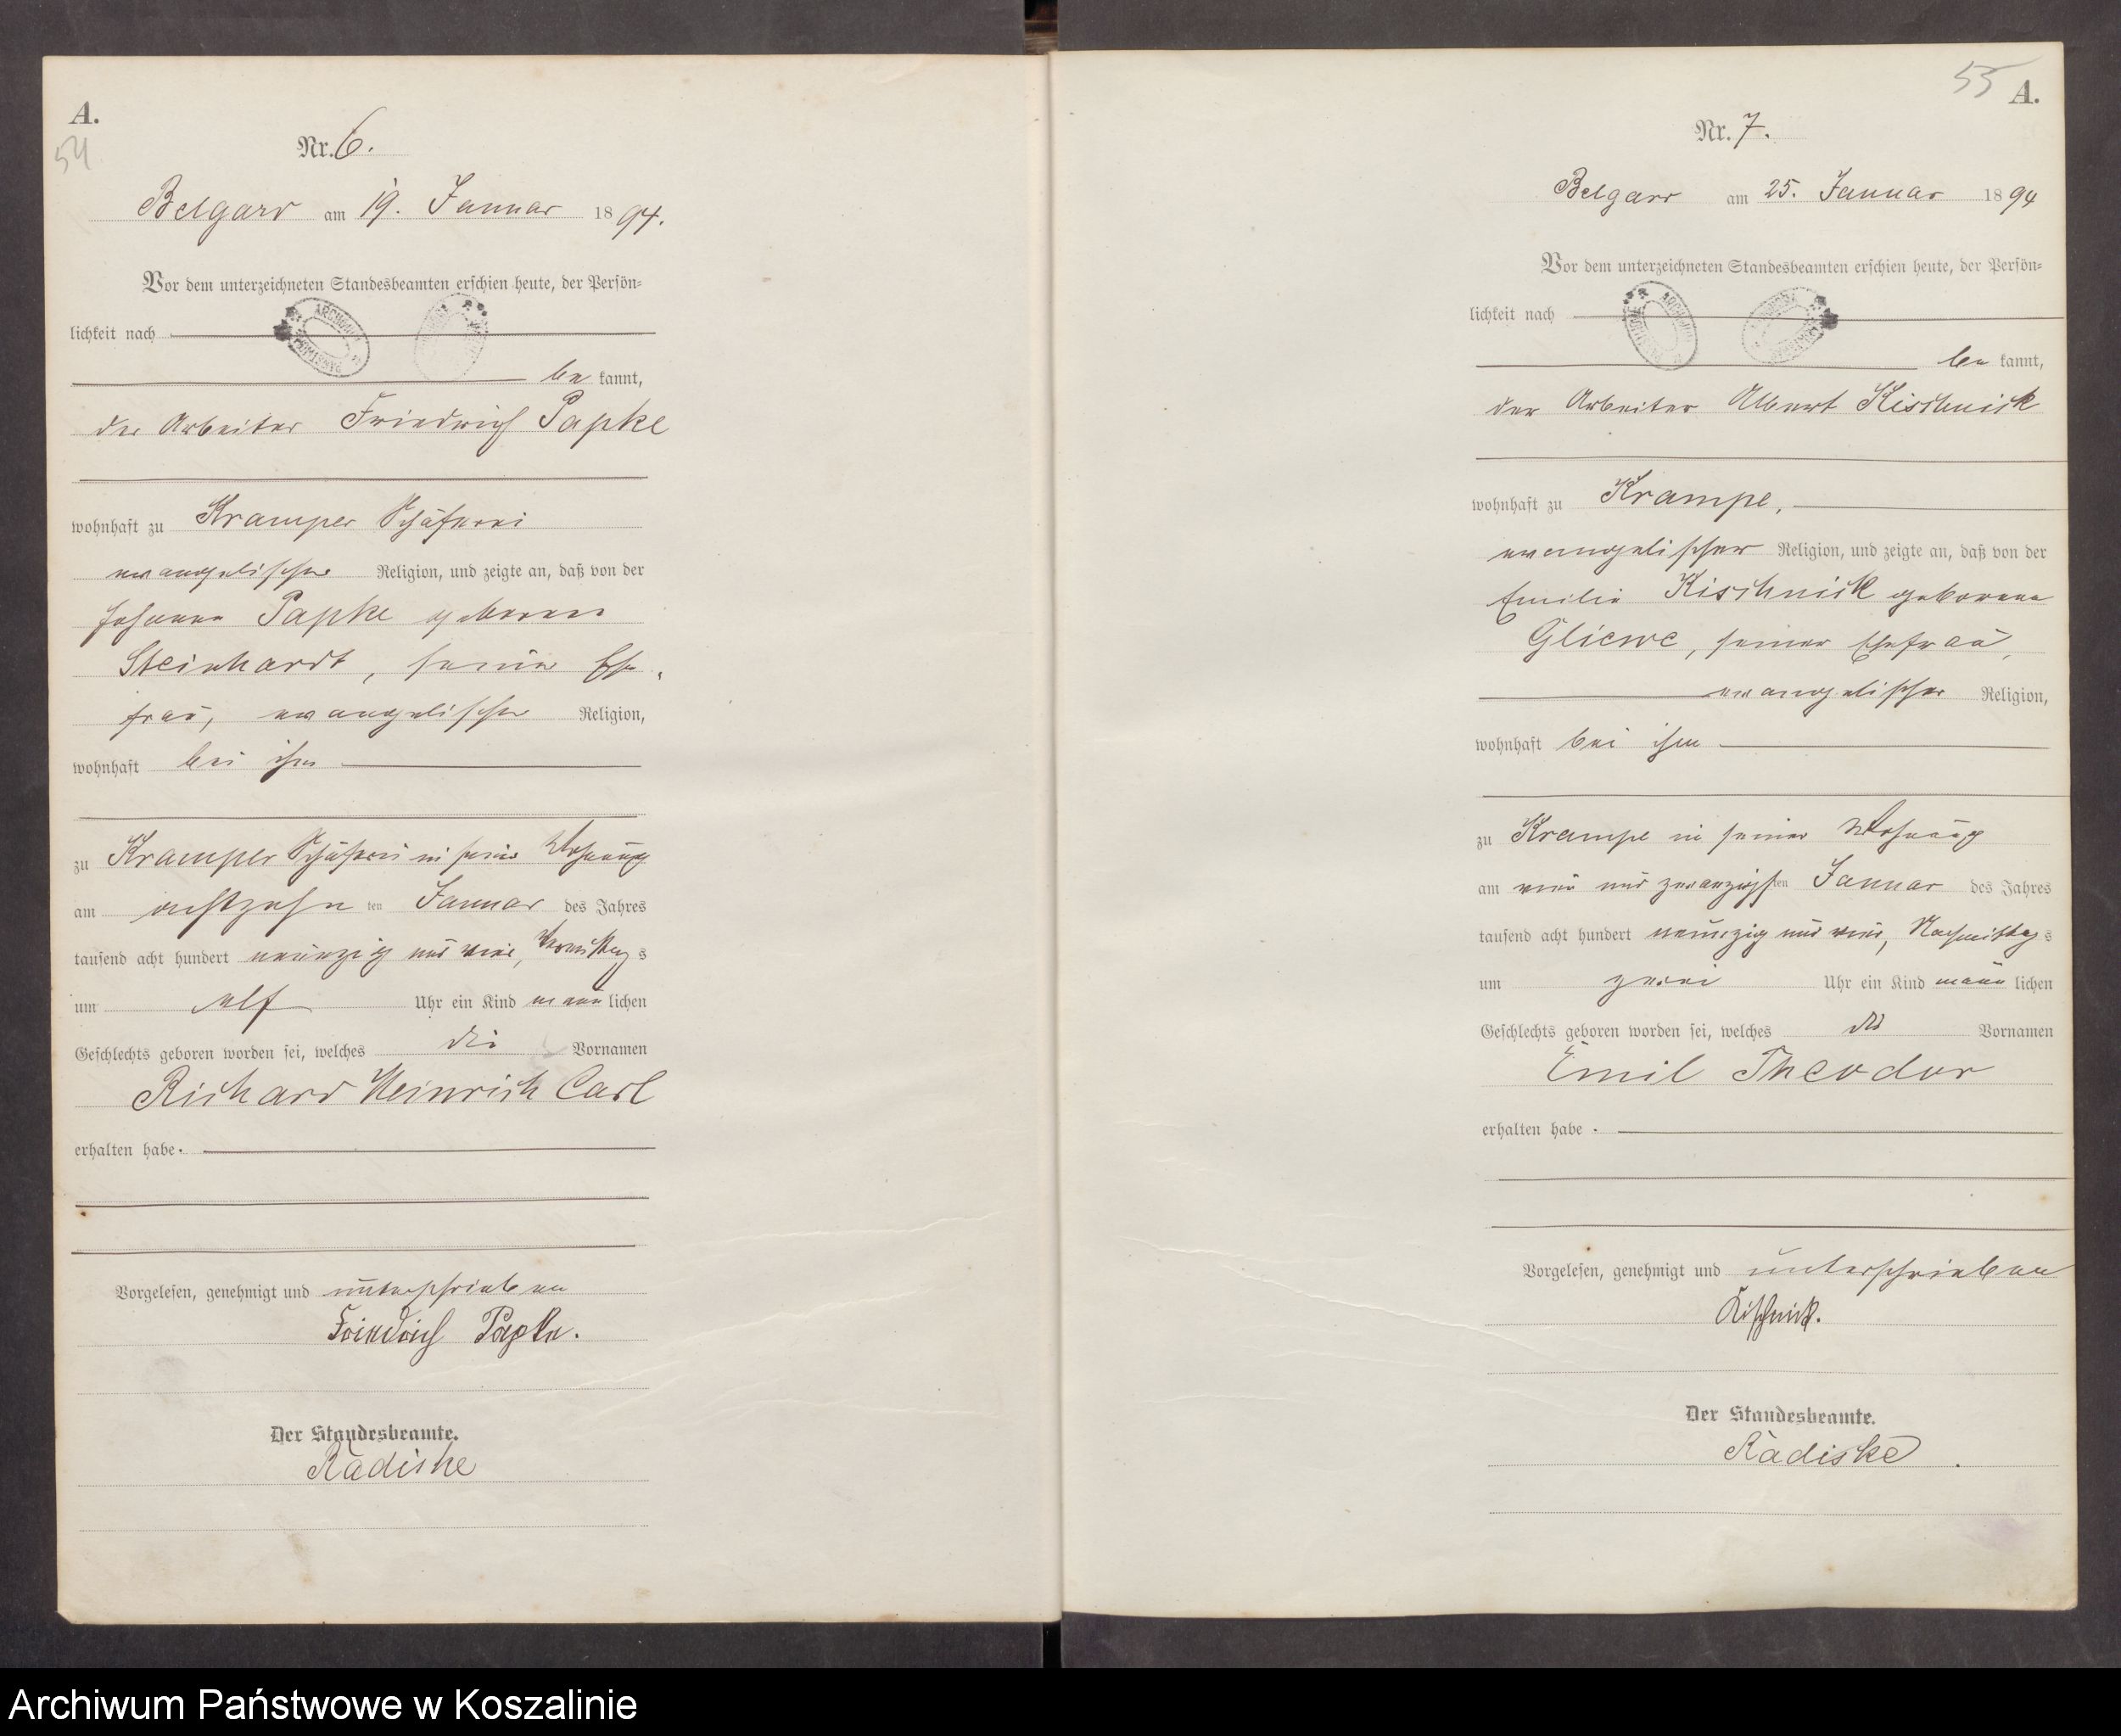 A.
54
Nr. 6.
Belgard am 19. Januar 1894.
Vor dem unterzeichneten Standesbeamten erschien heute, der Persön-
lichkeit nach
be kannt,
der Arbeiter Friedrich Papke
wohnhaft zu Kramper Schäferei
evangelischer Religion, und zeigte an, daß von der
Johanne Papke geborene
Steinhardt, seiner Ehe-
frau, evangelischer Religion,
wohnhaft bei ihm
zu Kramper Schäferei in seiner Wohnung
am achtzehn ten Januar des Jahres
tausend acht hundert neunzig und vier, Vormittag s
um elf Uhr ein Kind männ lichen
Geschlechts geboren worden sei, welches die Vornamen
Richard Heinrich Carl
erhalten habe.
Vorgelesen, genehmigt und unterschrieben
Friedrich Papke.
Der Standesbeamte.
Radiske
55
A.
Nr. 7.
Belgard am 25. Januar 1894
Vor dem unterzeichneten Standesbeamten erschien heute, der Persön-
lichkeit nach
be kannt,
der Arbeiter Albert Kischnick
wohnhaft zu Krampe,
evangelischer Religion, und zeigte an, daß von der
Emilie Kischnick geborene
Gliewe, seiner Ehefrau,
evangelischer Religion,
wohnhaft bei ihm
zu Krampe in seiner Wohnung
am vier und zwanzigsten Januar des Jahres
tausend acht hundert neunzig und vier, Nachmittag s
um zwei Uhr ein Kind männ lichen
Geschlechts geboren worden sei, welches die Vornamen
Emil Theodor
erhalten habe.
Vorgelesen, genehmigt und unterschrieben
Kischnick.
Der Standesbeamte.
Radiske
Archiwum Państwowe w Koszalinie